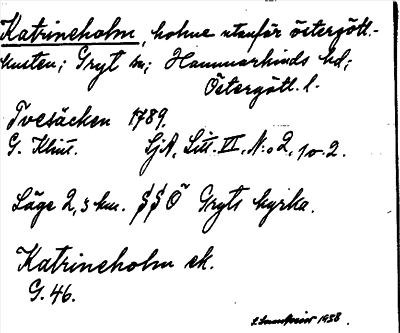 Katrineholm, holme utanför östergött.-
kusten; Gryt sn; Hammarkinds hd;
Östergötl. l.
Tvesäcken 1789.
G. Klint. SjA, Litt. VI, N:o 2, 1 o. 2.
Läge 2,3 km. SSÖ Gryts kyrka.
Katrineholm ek.
G. 46.
1938.